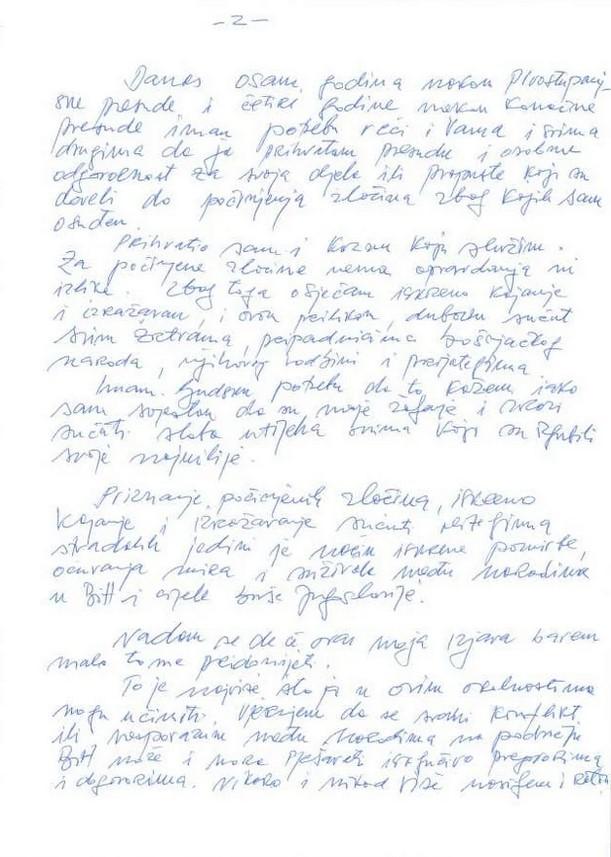 -2-
Danas osam godina nakon prvostupanj-
ske presude i četiri godine nakon konačne
presude imam potrebu reći i Vama i svima
drugima da ja prihvatam presudu i osobnu
odgovornost za svoja djela ili propuste koji su
doveli do počinjenja zločina zbog kojih sam
osuđen.
Prihvatio sam i kaznu koju služim.
Za počinjene zločine nema opravdanja ni
izlike. Zbog toga osjećam iskreno kajanje
i izražavam, i ovom prilikom duboku sućut
svim žrtvama, pripadnicima bošnjačkog
naroda, njihovoj rodbini i prijateljima
Imam ljudsku potrebu da to kažem iako
sam svjestan da su moje žaljenje i izrazi
sućuti slaba utjeha svima koji su izgubili
svoje najmilije.
Priznanje počinjenih zločina, iskreno
kajanje i izražavanje sućuti prijateljima
stradalih jedini je način iskrene pomirbe,
očuvanja mira i suživota među narodima
u BiH i cijele bivše Jugoslavije.
Nadam se da će ova moja izjava barem
malo tome pridonijeti.
To je najviše što ja u ovim okolnostima
mogu učiniti. Vjerujem da se svaki konflikt
ili nesporazum među narodima na području
BiH može i mora rješavati isključivo pregovorima
i dogovorima. Nikako i nikad više nasiljem i